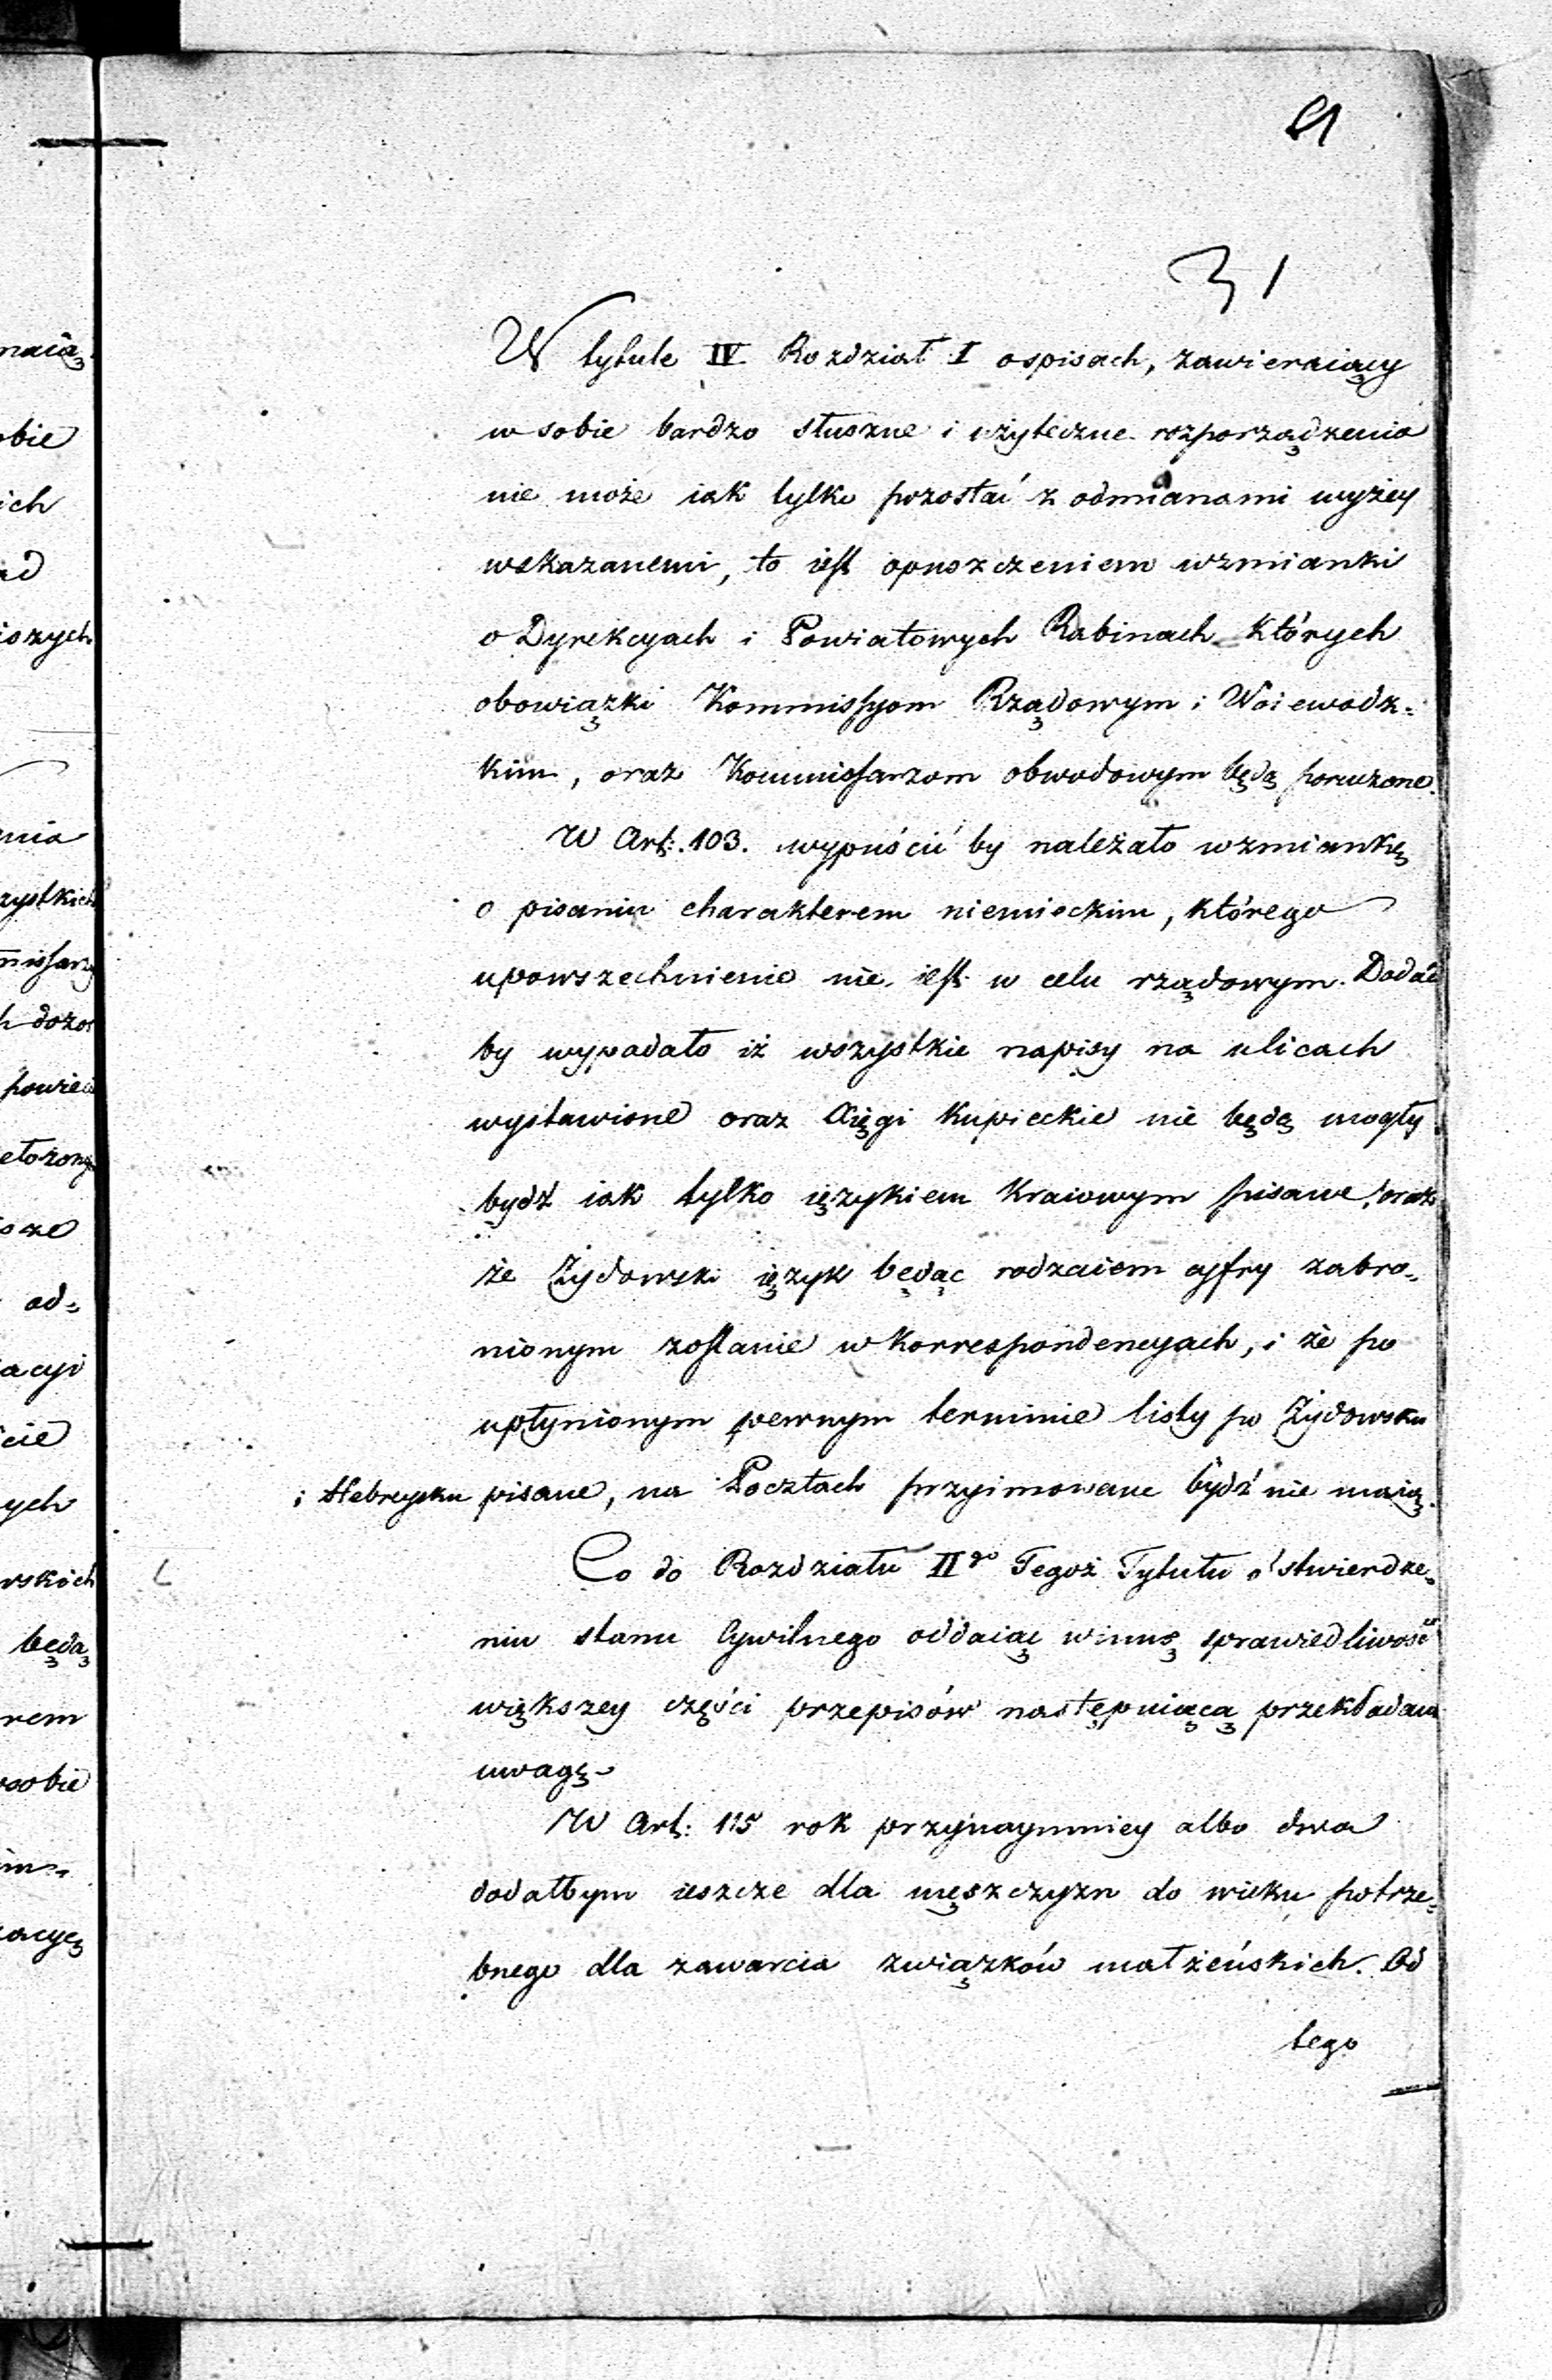 31
W tytule IV. Rozdział I o spisach, zawieraiący
w sobie bardzo słuszne i użyteczne rozporządzenia
nie może iak tylko pozostać z odmianami wyżey
wskazanemi, to iest opuszczeniem wzmianki
o Dyrekcyach i Powiatowych Rabinach których
obowiązki Kommissyom Rządowym i Woiewodz=
kim, oraz Kommissarzom obwodowym będą poruczone.
W Art: 103. wypuścić by należało wzmiankę
o pisaniu charakterem niemieckim, którego
upowszechnienie nie iest w celu rządowym. Dodać
by wypadało iż wszystkie napisy na ulicach
wystawione oraz Xięgi Kupieckie nie będą mogły
bydź iak tylko ięzykiem Kraiowym pisane, oraz
że Żydowski ięzyk będąc rodzaiem cyfry zabro=
nionym zostanie w Korrespondencyach, i że po
upłynionym pewnym terminie listy po Żydowsku
i Hebreysku pisane, na Pocztach przyimowane bydź nie maią.
Co do Rozdziału IIgo Tegoż Tytułu o stwierdze=
niu stanu Cywilnego oddaiąc winną sprawiedliwość
większey części przepisów następuiącą przekładam
uwagę
W Art: 115 rok przynaymniey albo dwa
dodałbym ieszcze dla męszczyzn do wieku potrze=
bnego dla zawarcia związków małżeńskich. Od
tego
maią
obie
ich
ad
enia
h dozo
od=
acyi
cie
ych
rskich
będą
rem
sobie